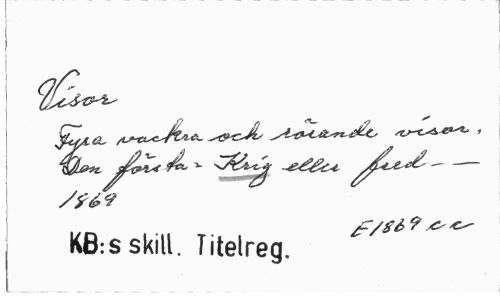 Visor
Fyra vackra och rörande visor.
Den första = Krig eller fred — —
1869
E1869 c c
KB:s skill. Titelreg.